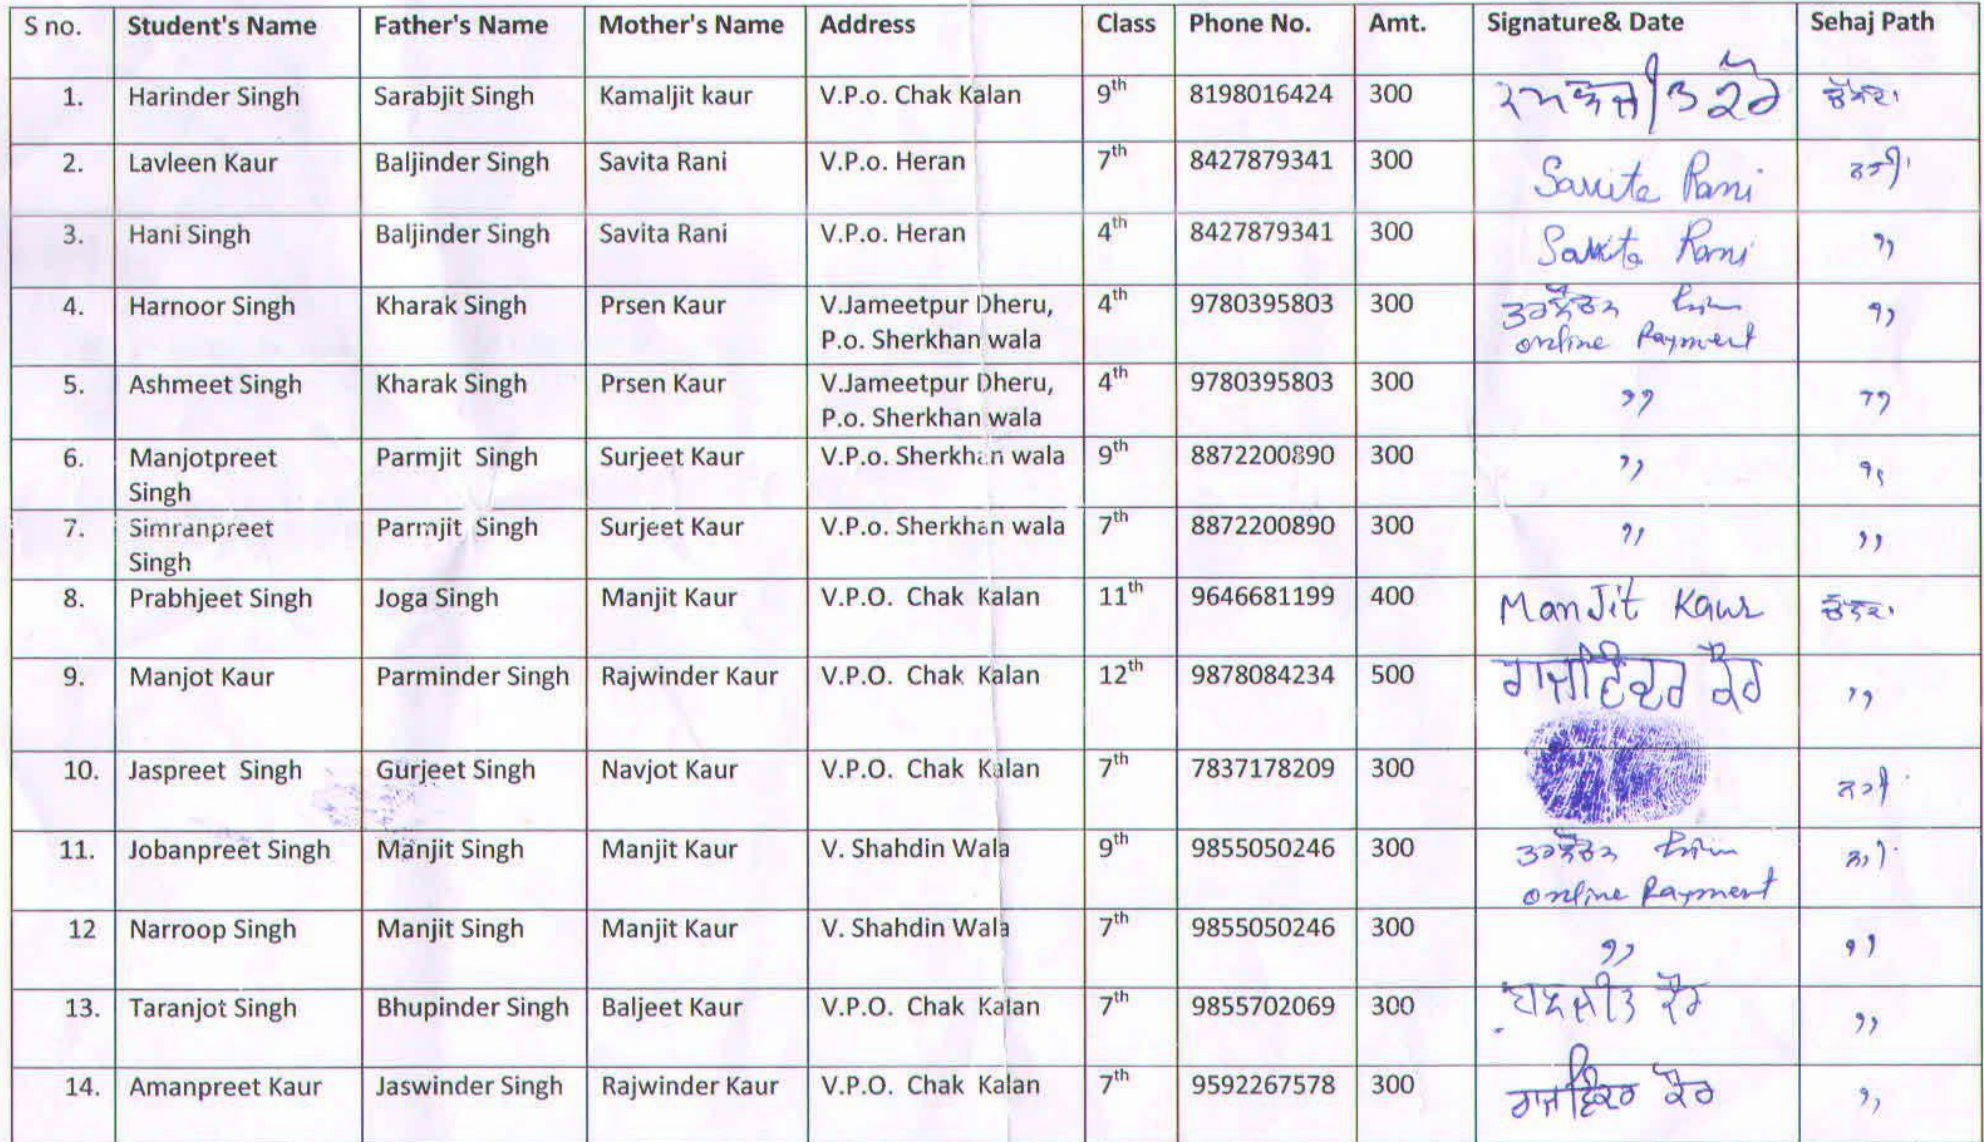 S no. Student's Name Father's Name Mother's Name Address Class Phone No. Amt. Signature& Date Sehaj Path
1. Harinder Singh Sarabjit Singh Kamaljit kaur V.P.o. Chak Kalan 9th 8198016424 300
2. Lavleen Kaur Baljinder Singh Savita Rani V.P.o. Heran 7th 8427879341 300 Savita Rani ਨਹੀਂ
3. Hani Singh Baljinder Singh Savita Rani V.P.o. Heran 4th 8427879341 300 Savita Rani ,,
4. Harnoor Singh Kharak Singh Prsen Kaur V.Jameetpur Dheru, 4th 9780395803 300 ,,
P.o. Sherkhan wala online Payment
5. Ashmeet Singh Kharak Singh Prsen Kaur V.Jameetpur Dheru, 4th 9780395803 300 ,, ,,
P.o. Sherkhan wala
6. Manjotpreet Parmjit Singh Surjeet Kaur V.P.o. Sherkhan wala 9th 8872200890 300 ,, ,,
Singh
7. Simranpreet Parmjit Singh Surjeet Kaur V.P.o. Sherkhan wala 7th 8872200890 300 ,, ,,
Singh
8. Prabhjeet Singh Joga Singh Manjit Kaur V.P.O. Chak Kalan 11th 9646681199 400 ManJit Kaur
9. Manjot Kaur Parminder Singh Rajwinder Kaur V.P.O. Chak Kalan 12th 9878084234 500 ਰਾਜਵਿੰਦਰ ਕੌਰ ,,
10. Jaspreet Singh Gurjeet Singh Navjot Kaur V.P.O. Chak Kalan 7th 7837178209 300 ਨਹੀਂ
11. Jobanpreet Singh Manjit Singh Manjit Kaur V. Shahdin Wala 9th 9855050246 300 ਨਹੀਂ
online Payment
12 Narroop Singh Manjit Singh Manjit Kaur V. Shahdin Wala 7th 9855050246 300 ,, ,,
13. Taranjot Singh Bhupinder Singh Baljeet Kaur V.P.O. Chak Kalan 7th 9855702069 300 ਬਲਜੀਤ ਕੌਰ ,,
14. Amanpreet Kaur Jaswinder Singh Rajwinder Kaur V.P.O. Chak Kalan 7th 9592267578 300 ਰਾਜਵਿੰਦਰ ਕੌਰ ,,